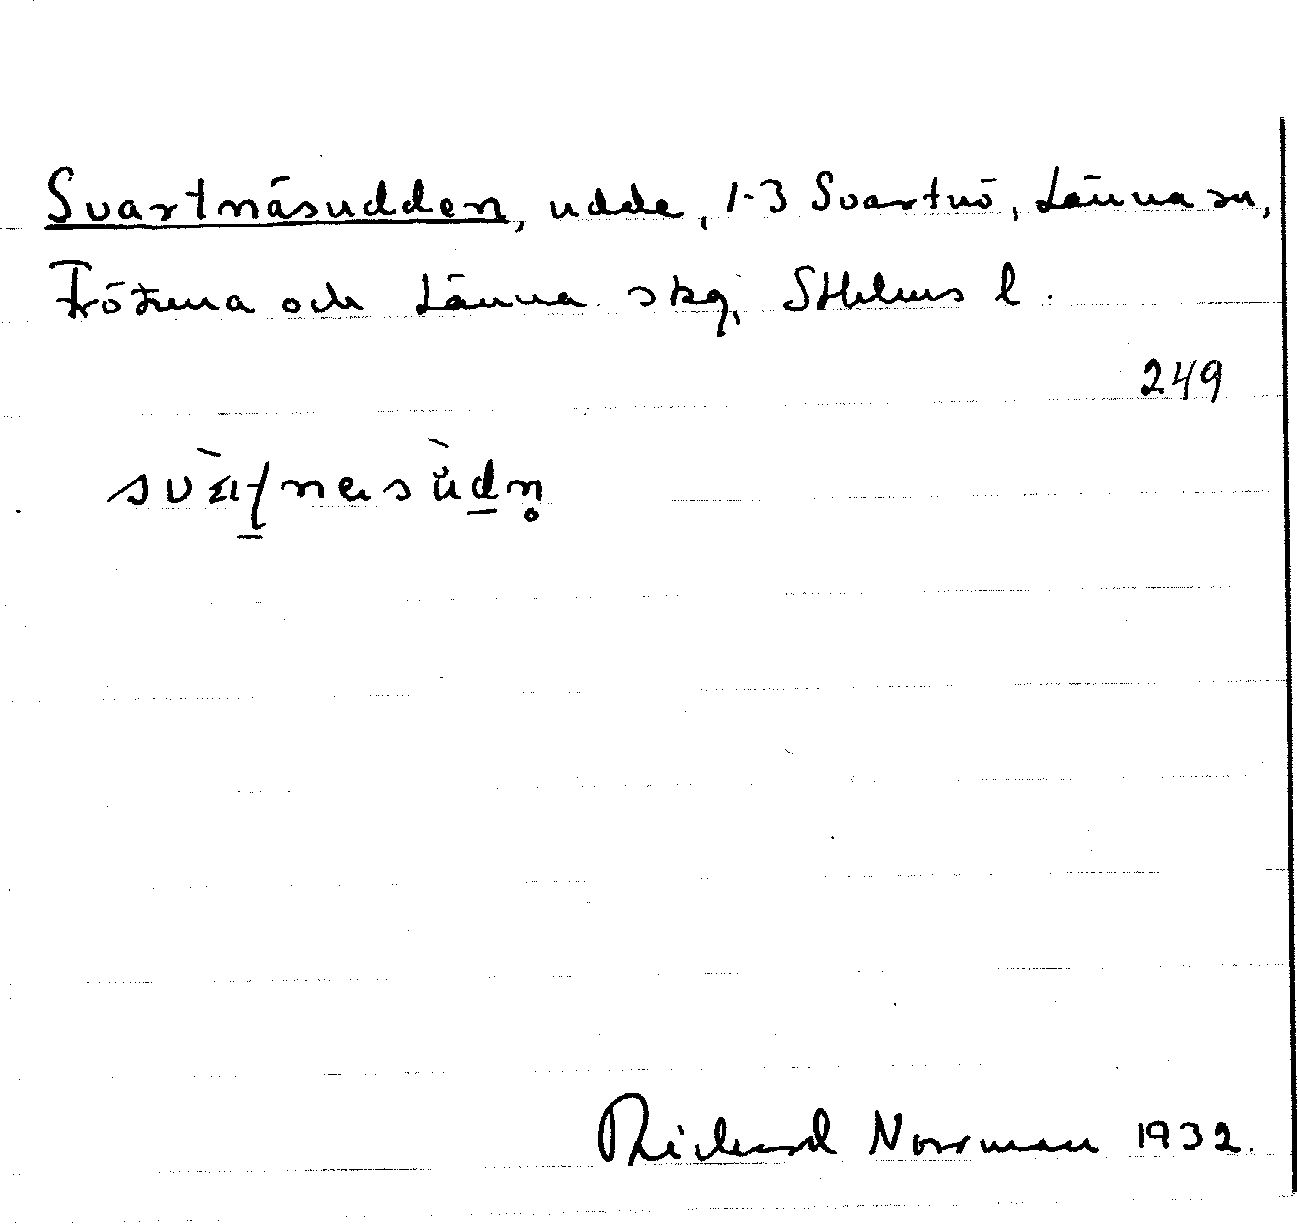 Svartnäsudden, udde, 1-3 Svartnö, Länna sn,
Frötuna och Länna skg, Sthlms l.
249
Richard Norrman 1932.